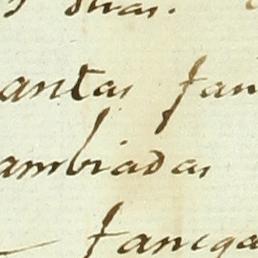 antas fan
ambiadas
fanega